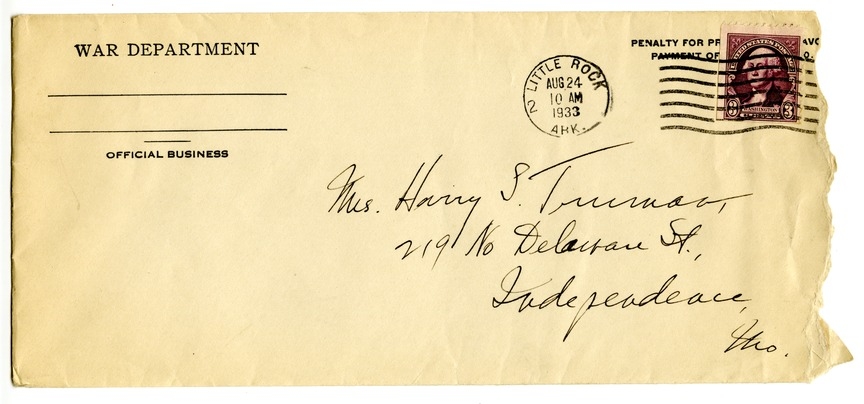 WAR DEPARTMENT
OFFICIAL BUSINESS
PENALTY FOR PR
PAYMENT OF
LITTLE ROCK
AUG 24
10 AM
1933
ARK.
2
UNITED STATES POSTAGE
WASHINGTON
3 3
Mrs. Harry S. Truman,
219 No Delaware St.,
Independence,
Mo.